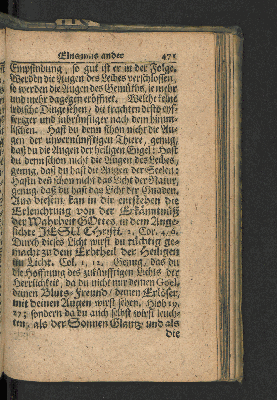 Eins ums ander 471
Empfindung, so gut ist er in der Folge.
Werden die Augen des Leibes verschlossen,
so werden die Augen des Gemüths, je mehr
und mehr dagegen eröffnet. Welche keine
irdische Dinge sehen, die trachten desto eyf-
feriger und inbrünstiger nach dem himm-
lischen. Hast du denn schon nicht die Au-
gen der unvernünfftigen Thiere, genug,
daß du die Augen der heiligen Engel: Hast
du denn schon nicht die Augen des Leibes,
genug, daß du hast die Augen der Seelen:
Hastu den schon nicht das Licht der Natur,
genug, daß du hast das Licht der Gnaden.
Aus diesem, kan in dir entstehen die
Erleuchtung von der Erkänntnüß
der Wahrheit GOttes, in dem Ange-
sichte JESU Christi, 2. Cor. 4, 6.
Durch dieses Licht wirst du tüchtig ge-
macht zu dem Erbtheil der Heiligen
im Licht. Col. 1, 12. Genug, das du
die Hoffnung des zukünfftigen Lichts der
Herrlichkeit, da du nicht nur deinen Goel,
deinen Bluts-Freund/ deinen Erlöser,
mit deinen Augen wirst sehen, Hiob 19,
27; sondern da du auch selbst wirst leuch-
ten, als der Sonnen Glantz und als
die